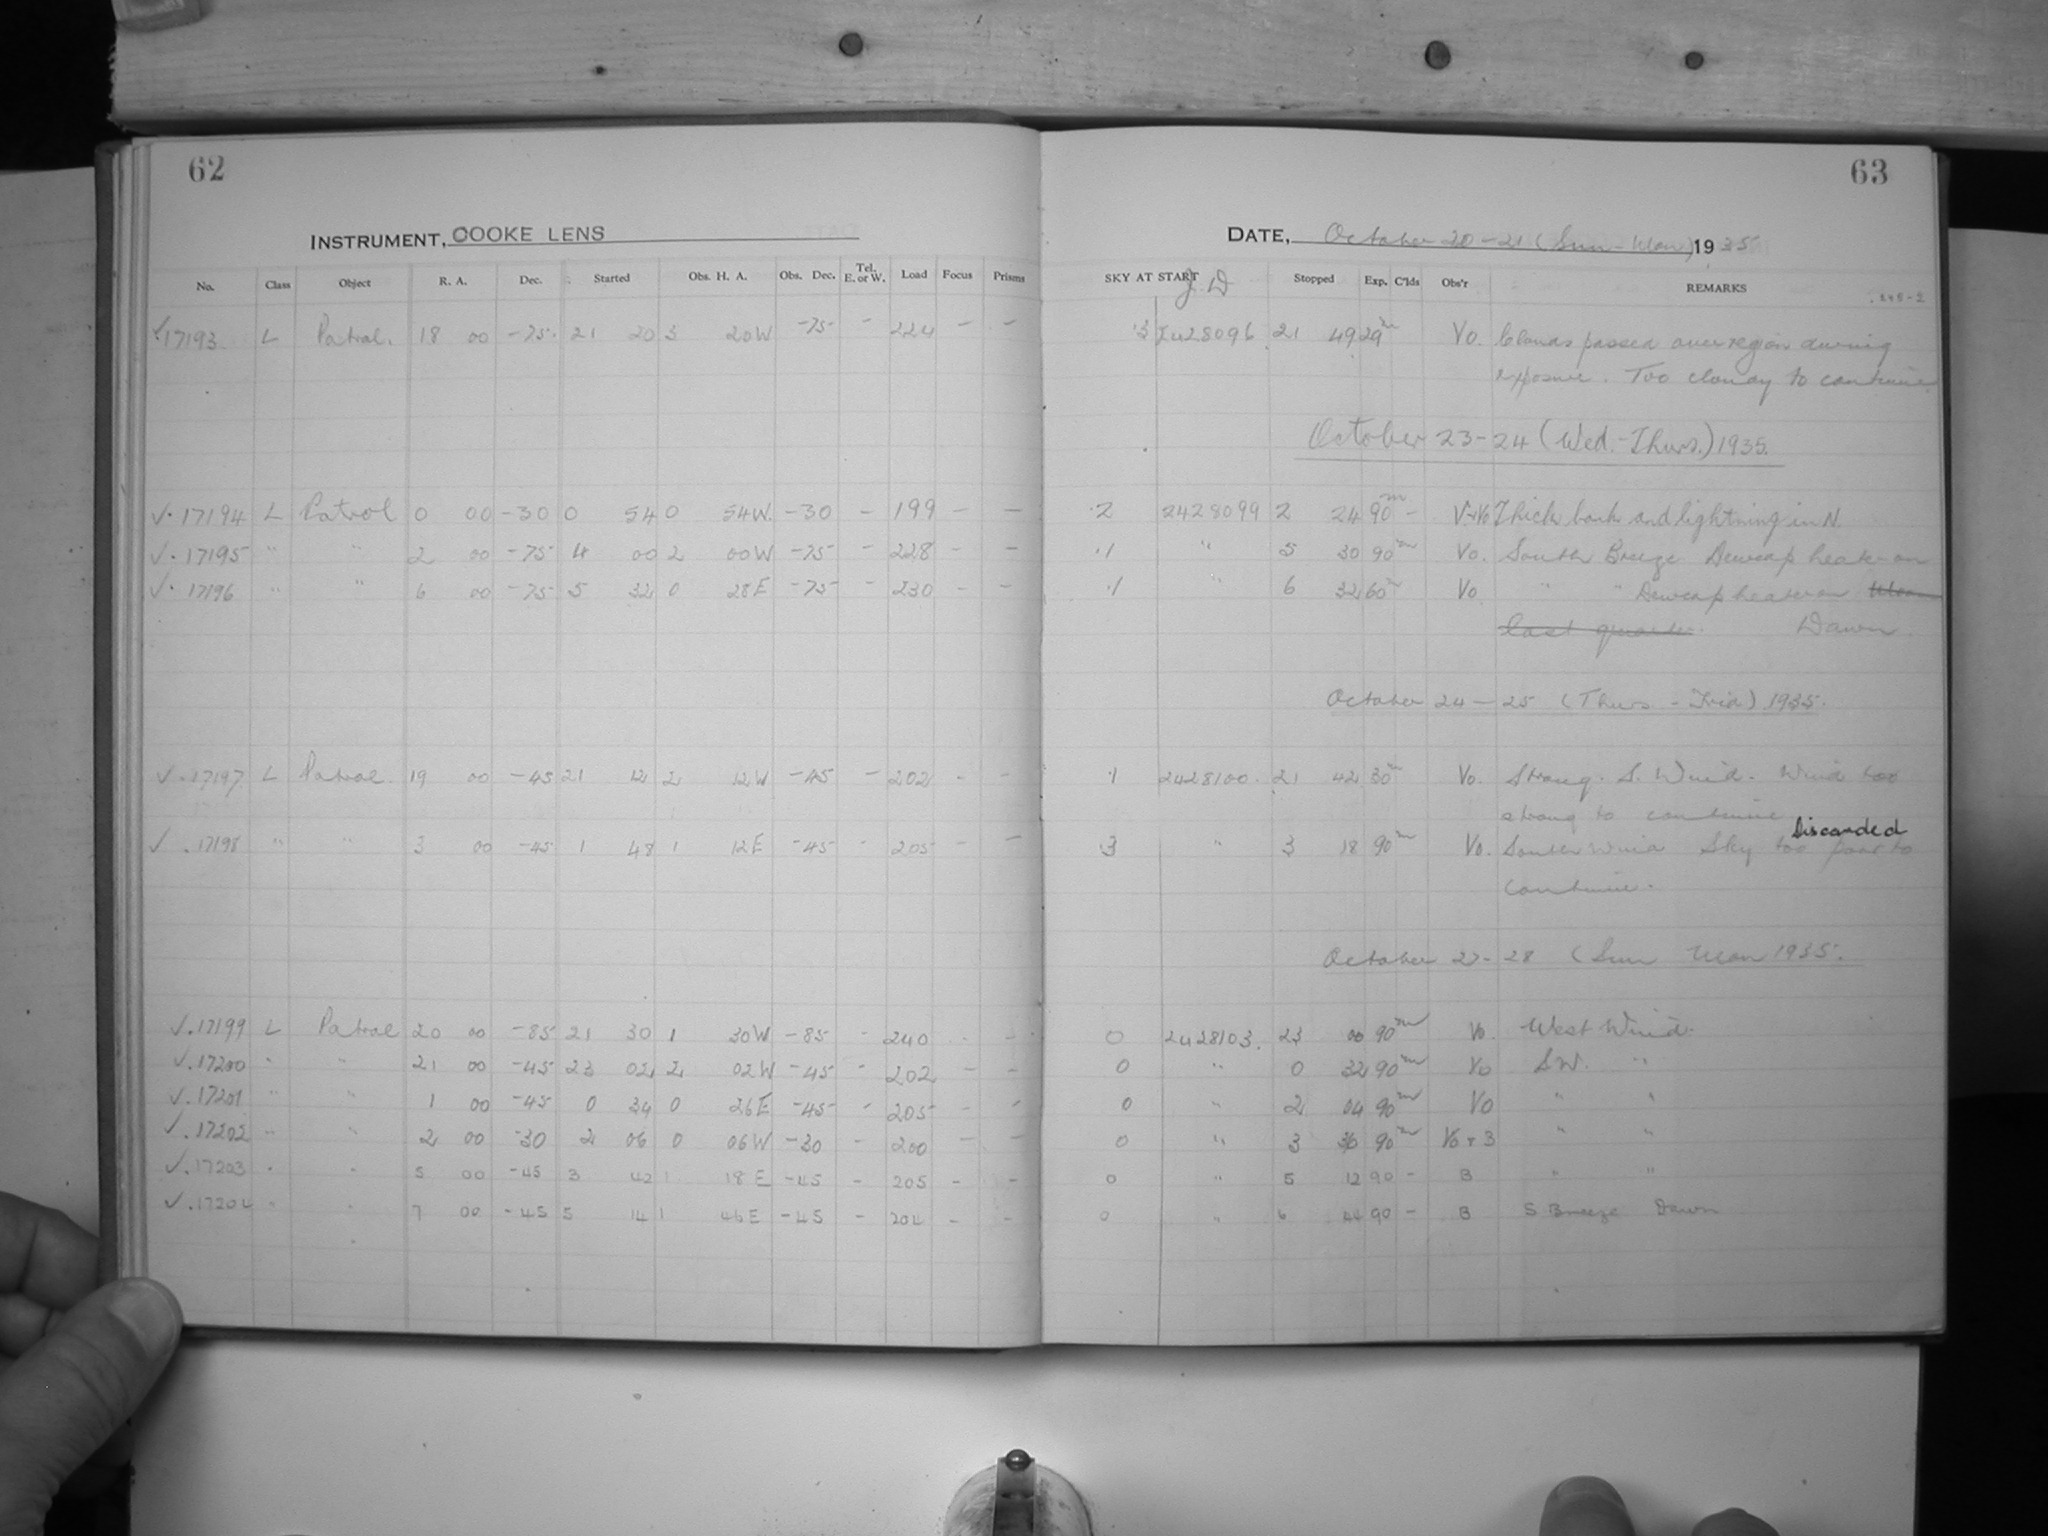 62
INSTRUMENT, COOKE LENS
No. Class Object R. A. Dec. Started Obs. H. A. Obs. Dec. Tel. E. or W. Load Focus Prisms
√17193 L Patrol. 18 00 -75. 21 20 3 20W -75 - 224 - -
√.17194 L Patrol 0 00 -30 0 54 0 54W. -30 - 199 - -
√.17195 " " 2 00 -75 4 00 2 00W -75 - 228 - -
√.17196 " " 6 00 -75 5 32 0 28E -75 - 230 - -
√.17197 L Patrol 19 00 -45 21 12 2 12W -45 - 202 - -
√.17198 " " 3 00 -45 1 48 1 12E -45 - 205 - -
√.17199 L Patrol 20 00 -85 21 30 1 30W -85 - 240 - -
√.17200 " " 21 00 -45 23 02 2 02W -45 - 202 - -
√.17201 " " 1 00 -45 0 34 0 26E -45 - 205 - -
√.17202 " " 2 00 -30 2 06 0 06W -30 - 200 - -
√.17203 " " 5 00 -45 3 42 1 18E -45 - 205 - -
√.17204 " " 7 00 -45 5 14 1 46E -45 - 204 - -
63
DATE, October 20-21 (Sun-Mon) 1935
SKY AT START J.D Stopped Exp. C'lds Obs'r REMARKS
3 2428096 21 49 29m Vo. Clouds passed over region during
exposure. Too cloudy to continue
October 23-24 (Wed.-Thurs.) 1935.
2 2428099 2 24 90m - Thick bank and lightning in N.
1 " 5 30 90m Vo. South Breeze Dewcap heater on
1 " 6 32 60m Vo " " Dewcap heater on Moon
last quarter. Dawn.
October 24-25 (Thurs-Frid) 1935.
1 2428100. 21 42 30m Vo. Strong. S. Wind. Wind too
strong to continue
Discarded
3 " 3 18 90m Vo. South wind Sky too poor to
continue.
October 27-28 (Sun Mon 1935.
0 2428103. 23 00 90m Vo. West Wind.
0 " 0 32 90m Vo SW. "
0 " 2 04 90m Vo " "
0 " 3 36 90m Vo + B " "
0 " 5 12 90 - B " "
0 " 6 44 90 - B S Breeze Dawn